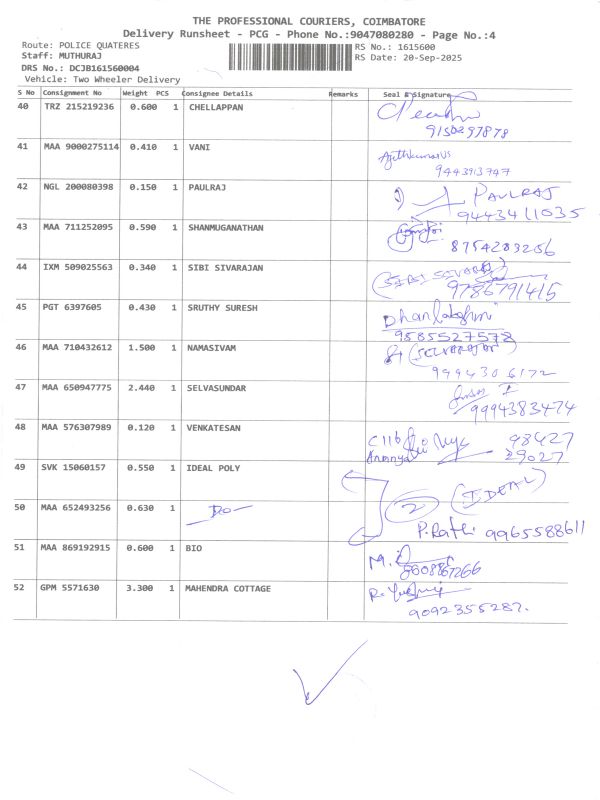 THE PROFESSIONAL COURIERS, COIMBATORE
Delivery Runsheet - PCG - Phone No.:9047080280 - Page No.:4
Route: POLICE QUATERES RS No.: 1615600
Staff: MUTHURAJ RS Date: 20-Sep-2025
DRS No.: DCJB161560004
Vehicle: Two Wheeler Delivery
S No Consignment No Weight PCS Consignee Details Remarks Seal & Signature
40 TRZ 215219236 0.600 1 CHELLAPPAN
9150297878
41 MAA 9000275114 0.410 1 VANI
9443913747
42 NGL 200080398 0.150 1 PAULRAJ PAULRAJ
9443411035
43 MAA 711252095 0.590 1 SHANMUGANATHAN
8754203256
44 IXM 509025563 0.340 1 SIBI SIVARAJAN (SIBI SIVARAJ)
9786791415
45 PGT 6397605 0.430 1 SRUTHY SURESH Dhanlakshmi
9585527578
46 MAA 710432612 1.500 1 NAMASIVAM (SELVARAJAN)
9994306172
47 MAA 650947775 2.440 1 SELVASUNDAR
9994383474
48 MAA 576307989 0.120 1 VENKATESAN C116 98427
Ananya 29027
49 SVK 15060157 0.550 1 IDEAL POLY
(IDEAL)
50 MAA 652493256 0.630 1 -Do- 2
P. Rathi 9965588611
51 MAA 869192915 0.600 1 BIO M.
8608867266
52 GPM 5571630 3.300 1 MAHENDRA COTTAGE R.
9092355287.